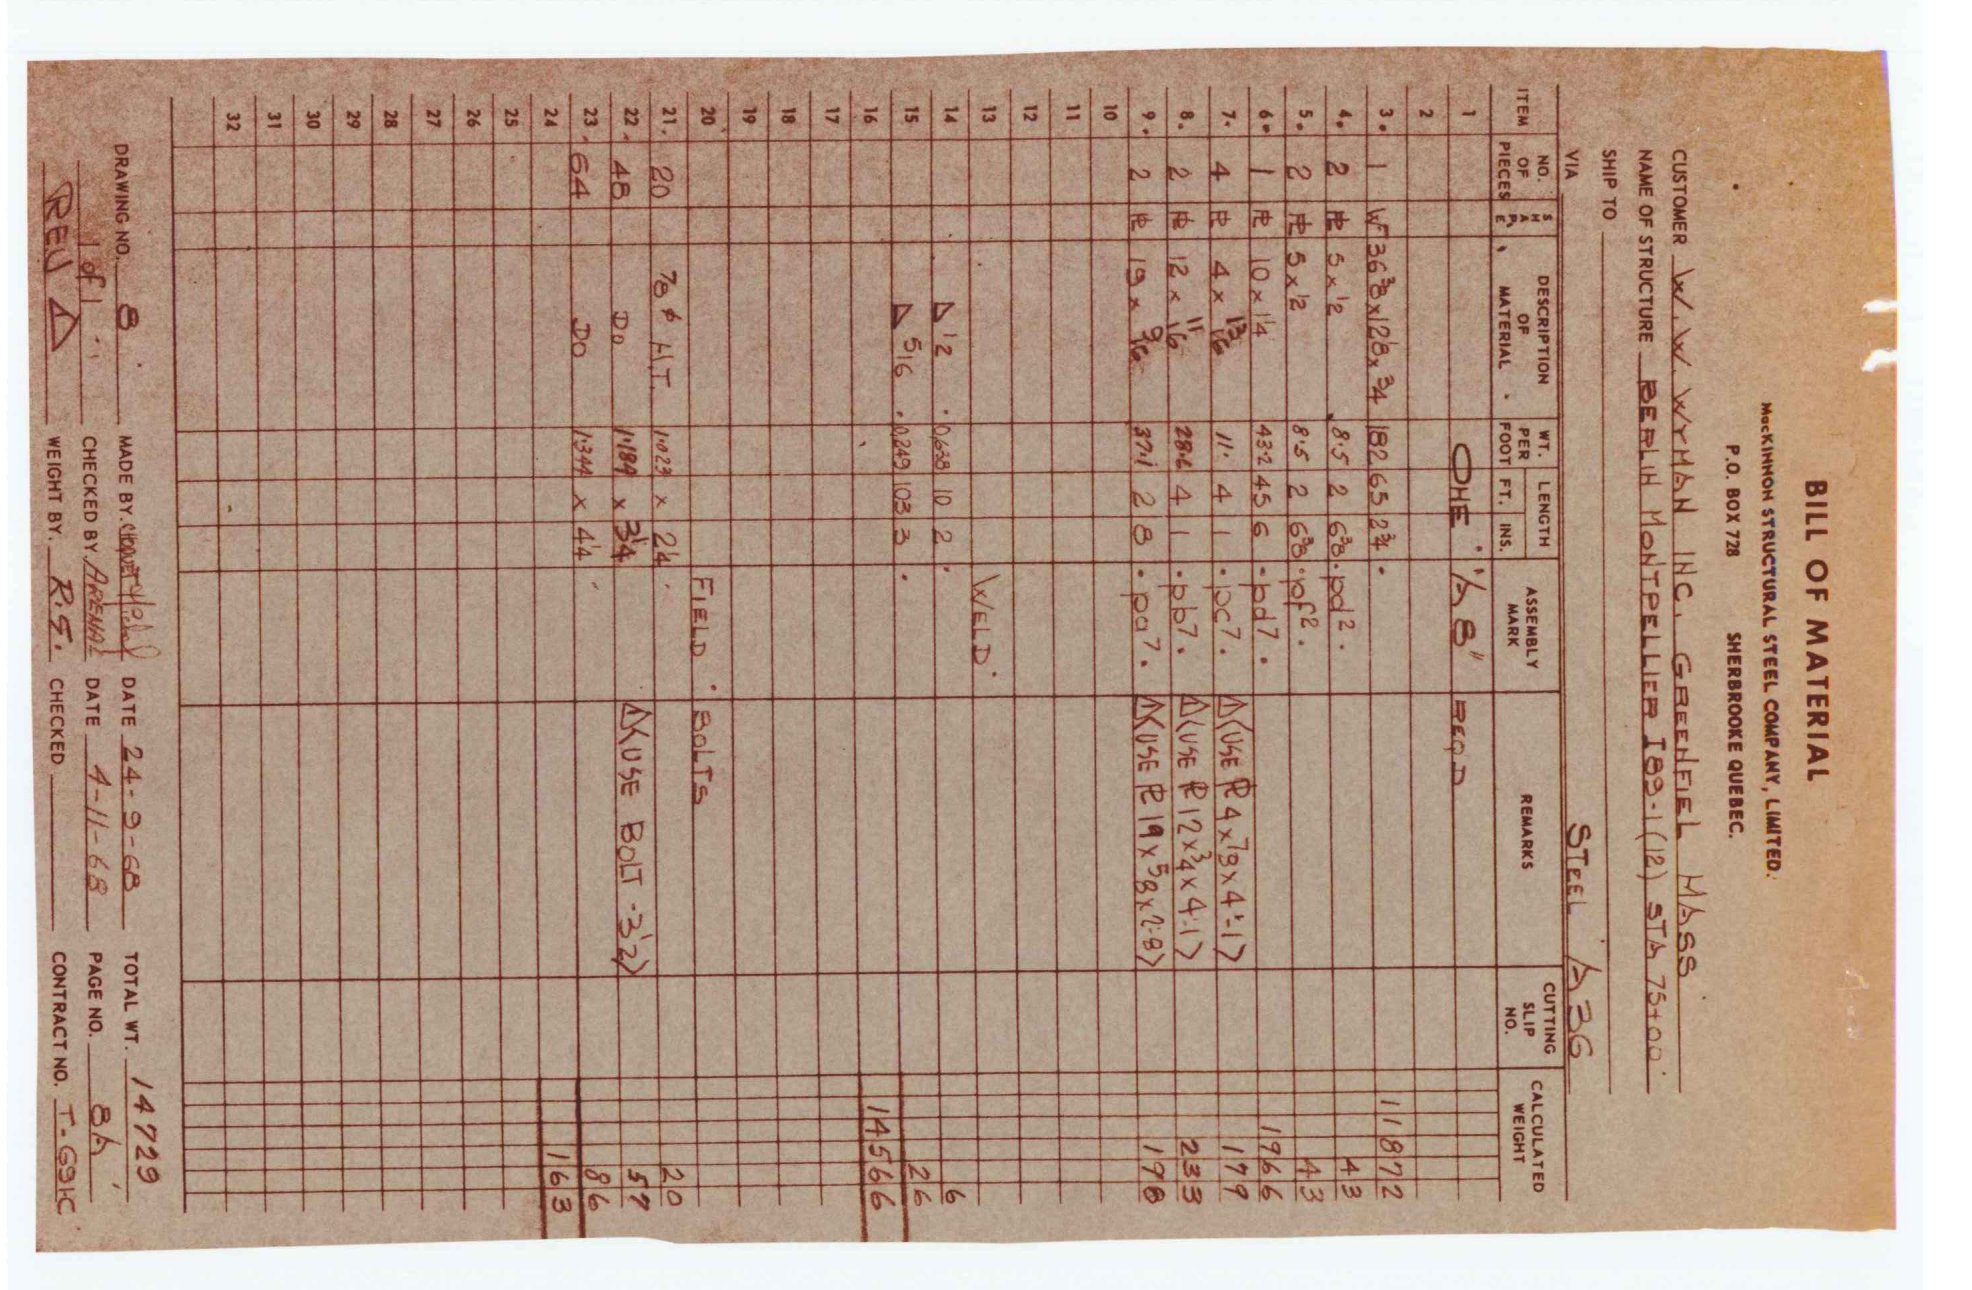 BILL OF MATERIAL
MacKINNON STRUCTURAL STEEL COMPANY, LIMITED.
P.O. BOX 728 SHERBROOKE QUEBEC.
CUSTOMER W. W. WYMAN INC. GREENFIEL MASS
NAME OF STRUCTURE BERLIN MONTPELLIER I89-1(12) STA 75+00
SHIP TO
VIA STEEL A36
ITEM NO. OF PIECES SHAPE DESCRIPTION OF MATERIAL WT. PER FOOT LENGTH FT. INS. ASSEMBLY MARK REMARKS CUTTING SLIP NO. CALCULATED WEIGHT
1 ONE "A8" REQD
2
3. 1 WF 36 3/8 x 12 1/8 x 3/4 182 65 2 3/4 11872
4. 2 PL 5 x 1/2 8.5 2 6 3/8 pd2. 43
5. 2 PL 5 x 1/2 8.5 2 6 3/8 pf2. 43
6. 1 PL 10 x 1 1/4 43.2 45 6 pd7. 1966
7. 4 PL 4 x 13/16 11. 4 1 pc7. △ (USE PL 4 x 7/8 x 4'-1) 179
8. 2 PL 12 x 11/16 28.6 4 1 pb7. △ (USE PL 12 x 3/4 x 4-1) 233
9. 2 PL 19 x 9/16 37.1 2 8 pa7. △ (USE PL 19 x 5/8 x 2-8) 198
10
11
12
13 WELD
14 △ 1/2 0,638 10 2 6
15 △ 5/16 0,249 103 3 26
16 14566
17
18
19
20 FIELD BOLTS
21. 20 7/8 ø H.T. 1.023 x 2 1/4 20
22. 48 DO 1.189 x 3 1/4 △ (USE BOLT - 3 1/2) 57
23. 64 DO 1.344 x 4 1/4 86
24 163
25
26
27
28
29
30
31
32
DRAWING NO. 8 MADE BY. DATE 24-9-68 TOTAL WT. 14729
1 of 1 CHECKED BY ARENAL DATE 4-11-68 PAGE NO. 8A
REV △ WEIGHT BY. R.G. CHECKED CONTRACT NO. T-691C